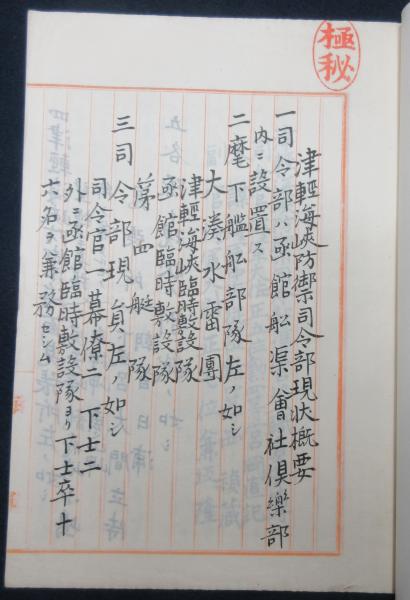 極秘
津軽海峡防禦司令部現状概要
一司令部ハ函館船渠會社倶樂部
内ニ設置ス
二麾下艦船部隊左ノ如シ
大湊水雷團
津輕海峡臨時敷設隊
函館臨時敷設隊
第四艇隊
三司令部現員左如シ
司令官一幕僚二下士二
外ニ函館臨時敷設隊ヨリ下士卒十
六名ヲ兼務セシム